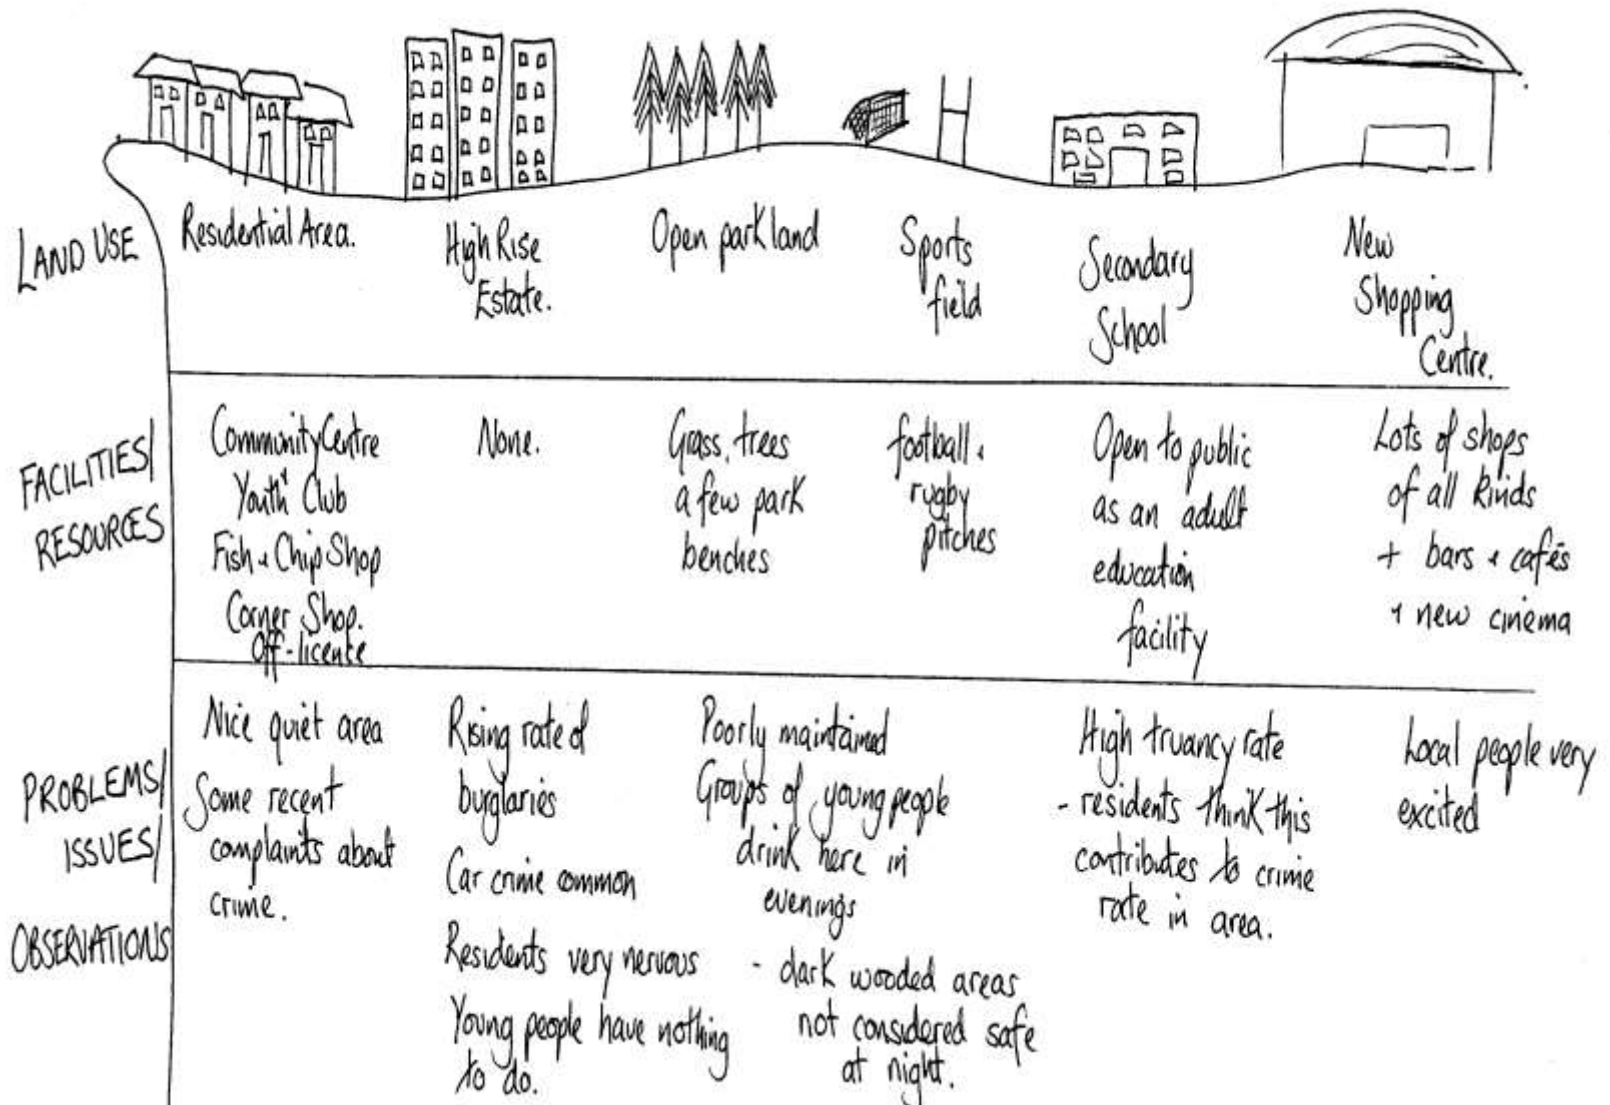 LAND USE
Residential Area.
High Rise
Estate.
Open park land
Sports
field
Secondary
School
New
Shopping
Centre.
FACILITIES/
RESOURCES
Community Centre
Youth Club
Fish & Chip Shop
Corner Shop.
Off-licence
None.
Grass, trees
a few park
benches
football &
rugby
pitches
Open to public
as an adult
education
facility
Lots of shops
of all kinds
+ bars & cafés
+ new cinema
PROBLEMS/
ISSUES/
OBSERVATIONS
Nice quiet area
Some recent
complaints about
crime.
Rising rate of
burglaries
Car crime common
Residents very nervous
Young people have nothing
to do.
Poorly maintained
Groups of young people
drink here in
evenings
- dark wooded areas
not considered safe
at night.
High truancy rate
- residents think this
contributes to crime
rate in area.
Local people very
excited